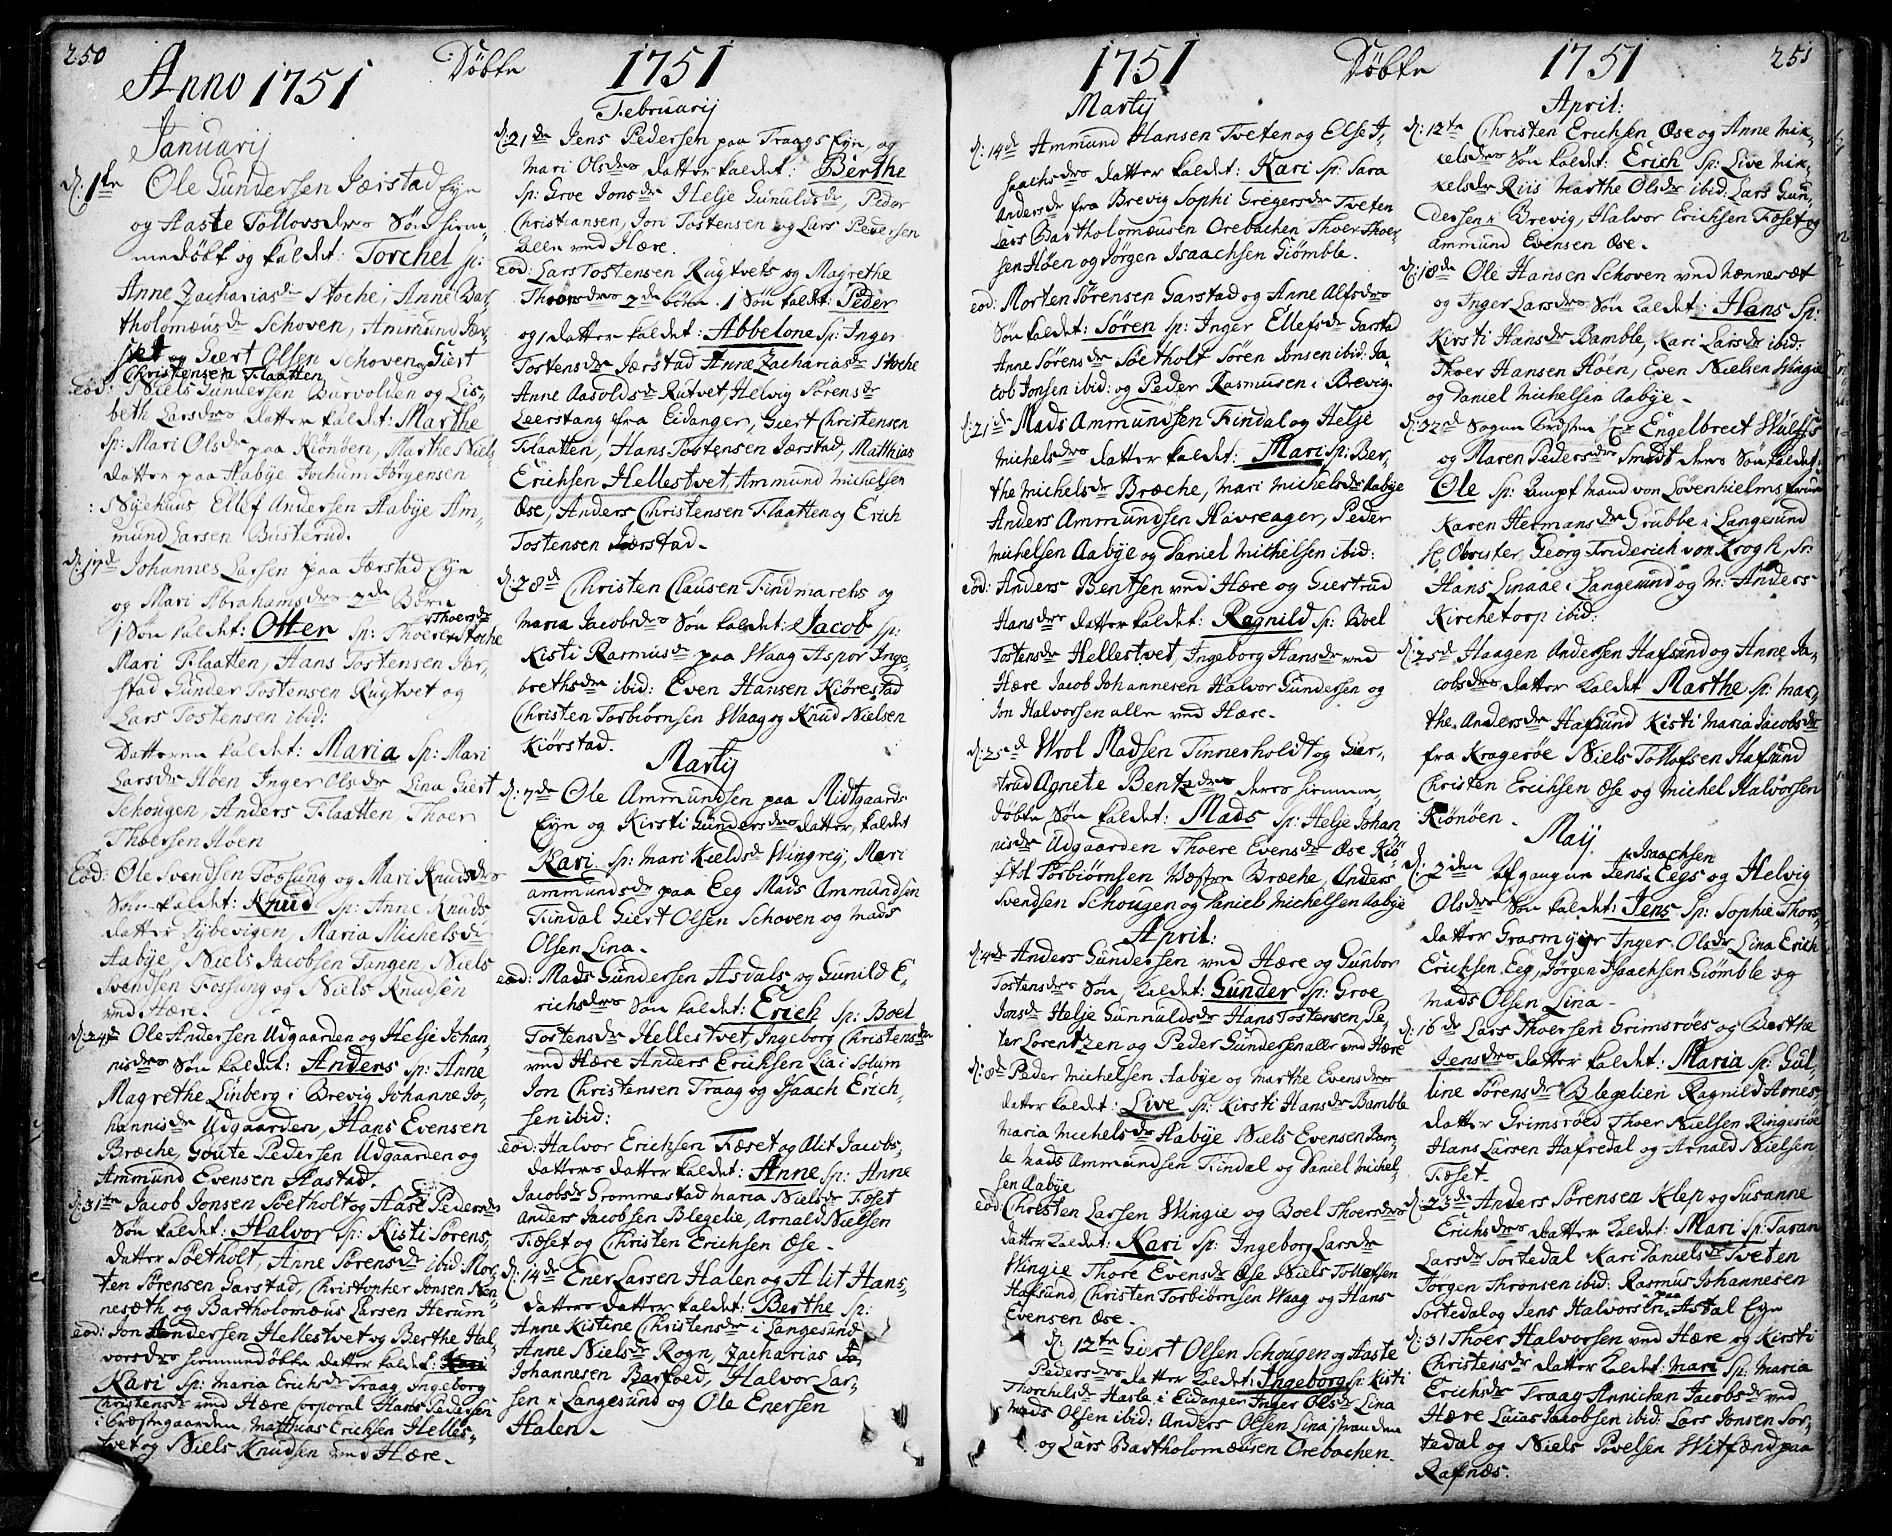 250
Anno 1751
Döbte
1751
Januarij
d: 1te Ole Gundersen Jærstad Eyn
og Aaste Tollovsdrs Sön hiem,
medöbt og kaldet: Torchel sp:
Anne Zachariasdr Stoche, Anne Bar,
tholomæusdr Schoven, Ammund Jær,
stet og Giert Olsen Schoven og Giert
Christensen Flaatten
eod: Niels Gundersen Burvolden og Lis,
beth Larsdrs datter kaldet: Marthe
sp: Mari Olsdr paa Kiönöen, Marthe Niels
datter paa Aabye Jochum Jörgensen
: Nyehuus Ellef Andersen Aabye Am,
mund Larsen Busterud.
d: 17d Johannes Larsen paa Jærstad Eyn
og Mari Abrahamsdrs 2de Börn
1 Sön kaldet: Otter sp: Thore Thoersdr Stoche
Mari Flaatten, Hans Tostensen Jær,
stad Gunder Tostensen Rugtvet og
Lars Tostensen ibid:
Datteren kaldet: Maria sp: Mari
Larsdr Höen Inger Olsdr Lina Giert
Schougen, Anders Flaatten, Thoer
Thoersen Höen
Eod: Ole Svendsen Fossung og Mari Knudsdrs
Sön kaldet: Knud sp: Anne Knuds
datter Sybevigen, Maria Michelsdr
Aabye, Niels Jacobsen Tangen, Niels
Svendsen Fossung og Niels Knudsen
ved Hære.
d: 24de Ole Andersen Udgaarden og Helje Johan,
nisdrs Sön kaldet: Anders sp: Anne
Magrethe Linberg i Brevig Johanne Jo,
hannisdr Udgaarden, Hans Evensen
Bræche, Goute Pedersen Udgaarden og
Ammund Evensen Aastad.
d: 31te Jacob Jonsen Söetholt og Aase Pedersdrs
Sön kaldet: Halvor sp: Kisti Sörens,
datter Söetholt, Anne Sörensdr ibid Mor,
ten Sörensen Garstad, Christopher Jonsen Non,
neseth og Bartholomæus Larsen Herum
eod: Jon Andersen Hellestvet og Berthe Hal,
vorsdrs hiemmedöbte datter kaldet:
Kari sp: Maria Erichsdr Traag Ingeborg
Christensdr ved Hære Corporal Hans Pedersen
i Præstegaarden Matthias Erichsen Helles,
tvet og Niels Knudsen ved Hære.
Februarij
d: 21de Jens Pedersen paa Traags Eyn, og
Mari Olsdrs datter kaldet: Berthe
sp: Groe Jonsdr Helje Gunuldsdr, Peder
Christiansen, Jon Tostensen og Lars Pedersen
alle ved Hære.
eod: Lars Tostensen Rugtvets og Magrethe
Thoersdrs 2de börn. 1 Sön kaldet: Peder
og 1 datter kaldet: Abbelone sp: Inger
Tostensdr Jærstad Anne Zachariasdr Stoche
Anne Aasoldsdr Rutvet, Helvig Sörensdr
Leerstang fra Eidanger, Giert Christensen
Flaatten, Hans Tostensen Jærstad, Matthias
Erichsen Hellestvet, Ammund Michelsen
Öse, Anders Christensen Flaatten og Erich
Tostensen Jærstad.
d: 28d Christen Clausen Findmarchs og
Maria Jacobsdrs Sön kaldet: Jacob sp:
Kisti Rasmusdr paa Waag Aspor Inge,
brethsdr ibid: Even Hansen Kiörestad
Christen Torbiörnsen Waag og Knud Nielsen
Kiörstad.
Martij
d: 7de Ole Ammundsen paa Midtgaards
Eyn og Kirsti Gundersdrs datter, kaldet
Kari sp: Mari Kieldsdr Wingrej, Mari
Ammundsdr paa Eeg Mads Ammundsen
Findal Giert Olsen Schoven og Mads
Olsen Lina.
eod: Mads Gundersen Asdals og Gunild E,
richsdrs Sön kaldet: Erich sp: Boel
Tostensdr Hellestvet Ingeborg Christensdr
ved Hære Anders Erichsen Lia i Solum
Jon Christensen Traag og Isaach Erich,
sen ibid:
eod: Halvor Erichsen Fæset og Alit Jacobs,
datters datter kaldet: Anne sp: Anne
Jacobsdr Grommestad Maria NielsdrFöset
Anders Jacobsen Blegelie, Arnald Nielsen
Föset og Christen Erichsen Öse.
d: 14de Ener Larsen Halen og Alit Hans,
datters datter kaldet: Berthe sp:
Anne Kistine Christensdr i Langesund
Anne Nielsdr Rogn, Zacharias
Johannesen Barfoed, Halvor Lar,
sen i Langesund og Ole Enersen
Halen.
1751
Döbte
1751
251
Martij
d: 14d Ammund Hansen Tveten og Else I,
saachsdrs datter kaldet: Kari sp: Sara
Andersdr fra Brevig Sophi Gregersdr Tveten
Lars Bartholomæusen Orebachen Thoer Thoer,
sen Höen og Jörgen Isaachsen Giömble.
eod: Morten Sörensen Garstad og Anne Alfsdrs
Sön kaldet: Sören sp: Inger Ellefsdr Garstad
Anne Sörensdr Söetholt Sören Jonsen ibid: Ja,
cob Jonsen ibid: og Peder Rasmusen i Brevig.
d: 21de Mads Ammundsen Findal og Helje
Michelsdrs datter kaldet: Mari sp: Ber,
the Michelsdr Bræche, Mari Michelsdr Aabye
Anders Ammundsen Havreager, Peder
Michelsen Aabye og Daniel Michelsen ibid:
eod: Anders Bentsen ved Hære og Giertrud
Hansdrs datter kaldet: Ragnild sp: Boel
Tostensdr Hellestvet, Ingeborg Hansdr ved
Hære Jacob Johannesen Halvor Gundersen og
Jon Halvorsen alle ved Hære.
d: 25de Wrol Madsen Tinnerholdt og Gier,
trud Agnete Bentzdrs deres hiemme,
döbte Sön kaldet: Mads sp: Helje Johan
nisdr Udgaarden Thoere Evensdr Öse Kiö
Torbiörnsen Væstre Bræche, Anders
Svendsen Schougen og Daniel Michelsen Aabye
April:
d: 4de Anders Gundersen ved Hære og Gunbor
Tostensdrs Sön kaldet: Gunder sp: Groe
Jonsdr Helje Gunnuldsdr Hans Tostensen, Pe,
ter Lorentzen og Peder Gundersen alle ved Hære
d: 8d Peder Michelsen Aabye og Marthe Evensdrs
datter kaldet: Live sp: Kirsti Hansdr Bamble
Maria Michelsdr Aabye Niels Evensen Bam,
le Mads Ammundsen Findal og Daniel Michel,
sen Aabye
eod: Christen Larsen Wingie og Boel Thoersdrs
datter kaldet: Kari sp: Ingeborg Larsdr
Wingie Thore Evensdr Öse Niels Tollefsen
Hafsund, Christen Torbiörnsen Waag og Hans
Evensen Öse.
d: 12te Giert Olsen Schougen og Aaste
Pedersdrs datter kaldet: Ingeborg sp: Kisti
Thorchelsdr Hasle i Eidanger Inger Olsdr Lina
Mads Olsen ibid: Anders Olsen Lina Stranden
og Lars Bartholomæusen Orebachen.
April:
d: 12te Christen Erichsen Öse og Anne Mik,
kelsdrs Sön kaldet: Erich sp: Live Mik,
kelsdr Riis Marthe Olsdr ibid: Lars Gun,
dersen i Brevig, Halvor Erichsen Föset og
Ammund Evensen Öse.
d: 18de Ole Hansen Schoven ved Nænneset
og Inger Larsdrs Sön kaldet: Hans sp:
Kirsti Hansdr Bamble, Kari Larsdr ibid:
Thoer Hansen Höen, Even Nielsen Wingie
og Daniel Michelsen Aabye.
d: 22de Sogne Præsten Hr Engelbrect Wulffs
og Maren Pedersdrs Smidt deres Sön kaldet:
Ole sp: von Lövenhielms frue
Karen Hermansdr Grubbe i Langesund
Hr Obrister Georg Friderich von Krogh, Sr.
Hans Linaae i Langesund og M: Anders
Kirchetorp ibid:
d: 25de Haagen Andersen Hafsund og Anne Ja,
cobsdrs datter kaldet Marthe sp: Mar,
the Andersdr Hafsund Kisti Maria Jacobsdr
fra Kragerøe Niels Tollofsen Hafsund
Christen Erichsen Öse og Michel Halvorsen
Kiönöen.
Maij
d: 2den Afgangne Jens Isaachsen Eegs og Helvig
Olsdrs Sön kaldet: Jens sp: Sophie Thors,
datter Grasmyr Inger Olsdr Lina Erich
Erichsen Eeg, Jörgen Isaachsen Giömble og
Mads Olsen Lina.
d: 16de Lars Thoersen Grimsröes og Berthe
Jensdrs datter kaldet: Maria sp: Gul,
line Sörensdr Blegelien Ragnild Arnes,
datter Grimsröed Thoer Nielsen Ringesiöe
Hans Larsen Hafredal og Arnald Nielsen
Föset.
d: 23de Anders Sörensen Klep og Susanne
Erichsdrs datter kaldet: Mari sp: Taran
Larsdr Tortedal Kari Danielsdr Tveten
Jörgen Thronsen ibid: Rasmus Johannesen
Tortedal og Jens Halvorsen paa Astal Eyn
d: 31 Thoer Halvorsen ved Hære og Kirsti
Christensdr datter kaldet: Mari sp: Maria
Erichsdr Traag Annichen Jacobsdr ved
Hære Luias Jacobsen ibid: Lars Jonsen Tor,
tedal og Niels Povelsen Witfænd paa
Rafnæs.